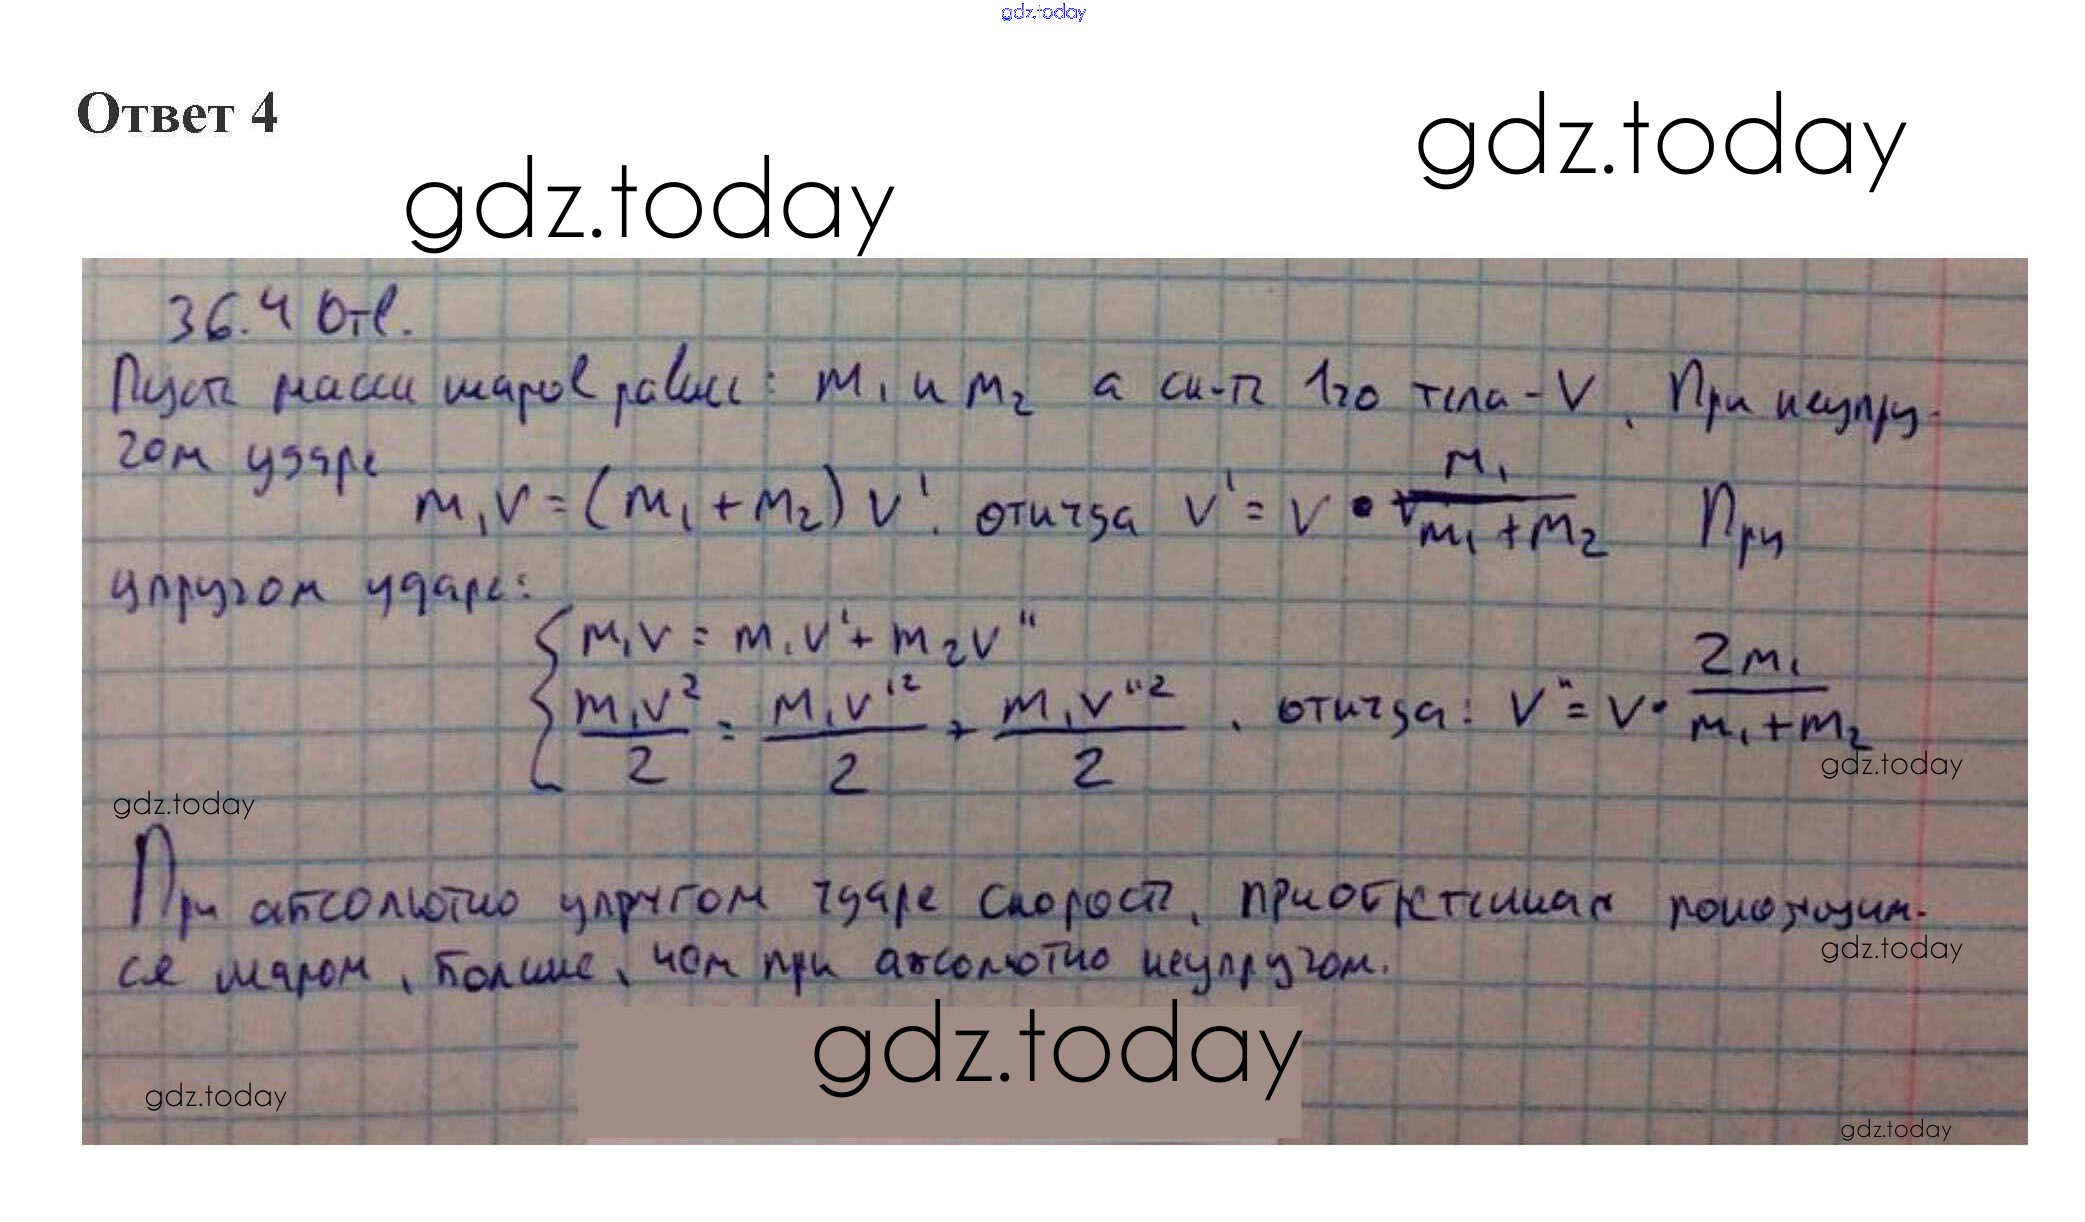 gdz.today
Ответ 4
gdz.today
gdz.today
36.4 Отв.
Пусть массы шаров равны: m₁ и m₂ а ск-ть 1го тела - V. При неупру-
гом ударе
m₁V = (m₁ + m₂) V'. откуда V' = V • m₁/(m₁ + m₂) При
упругом ударе:
{ m₁V = m₁V' + m₂V''
m₁V²/2 = m₁V'²/2 + m₁V''²/2 . откуда: V'' = V • 2m₁/(m₁ + m₂)
gdz.today
gdz.today
При абсолютно упругом ударе скорость, приобретенная покоящим-
ся шаром, больше, чем при абсолютно неупругом.
gdz.today
gdz.today
gdz.today
gdz.today